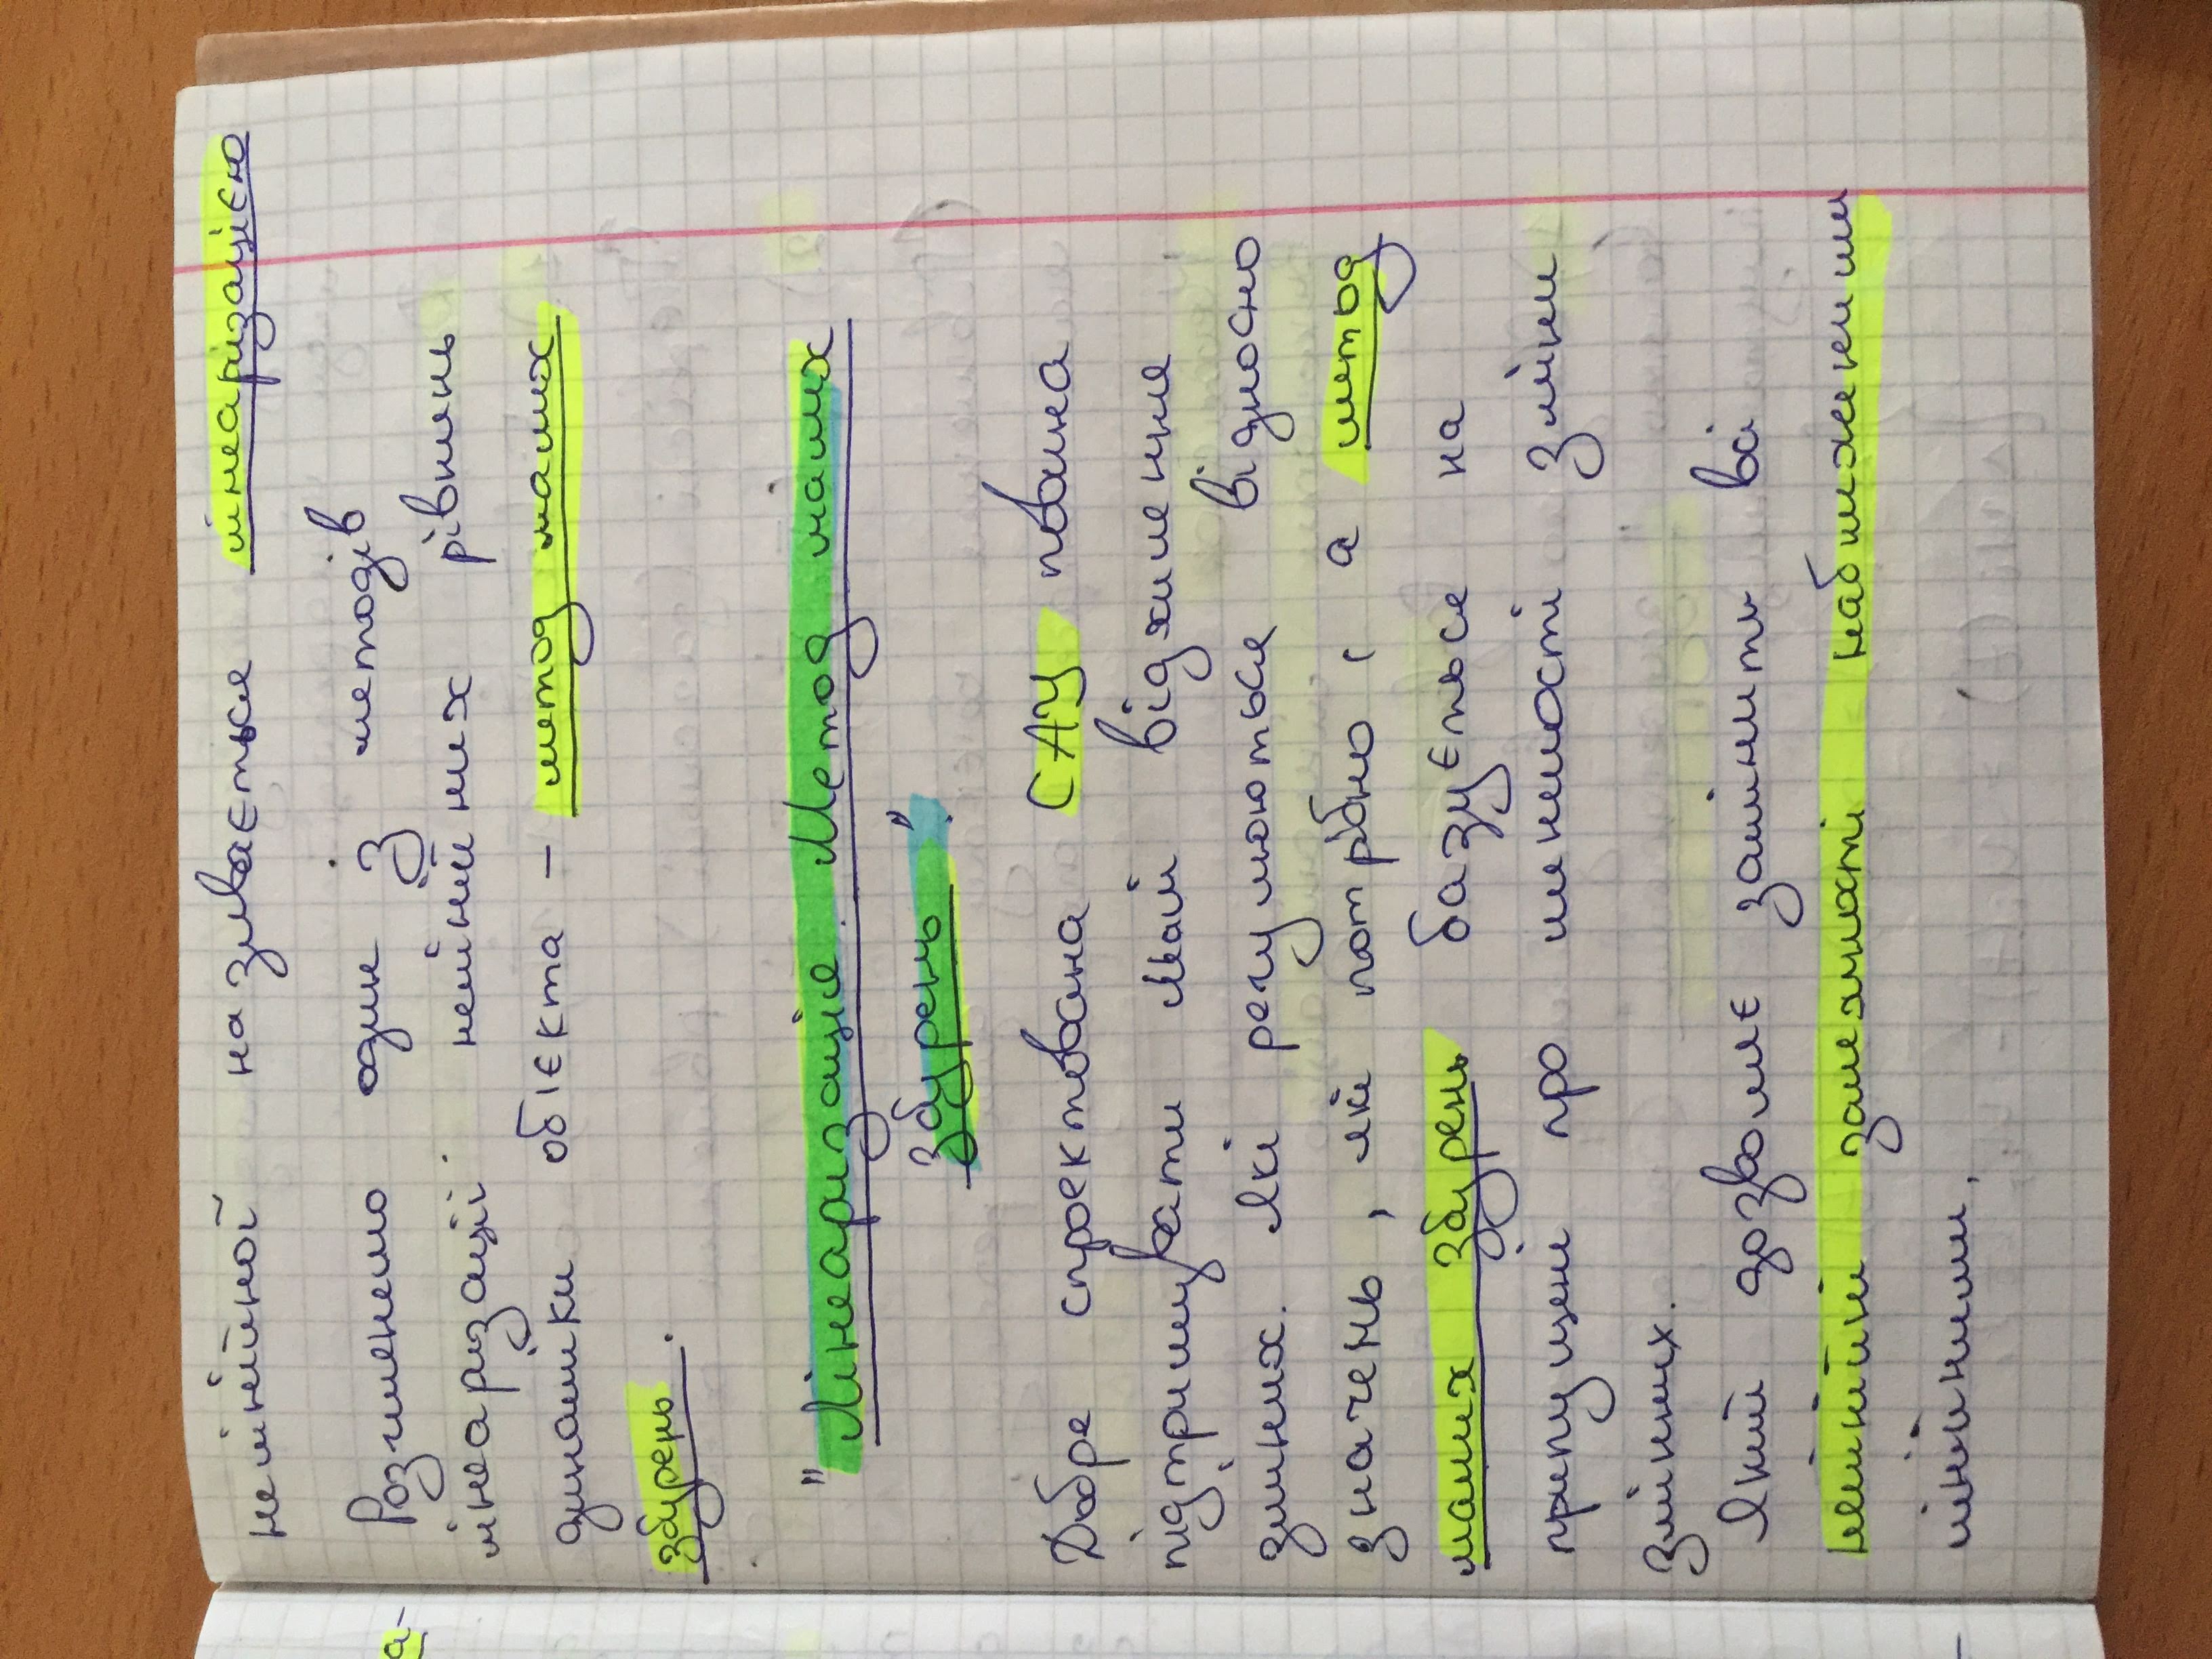 нелінійної називається лінеаризацією
Розглянемо один із методів
лінеаризації нелінійних рівнянь
динаміки об'єкта – метод малих
збурень.
"Лінеаризація. Метод малих
збурень".
Добре спроектована САУ повина
підтримувати малі відхилення
змінних. які регулюються відносно
значень, які потрібно, а метод
малих збурень базується на
припущені про меншості зміни
змінних.
Який дозволяє замінити всі
нелінійні залежності наближеними
лінійними.